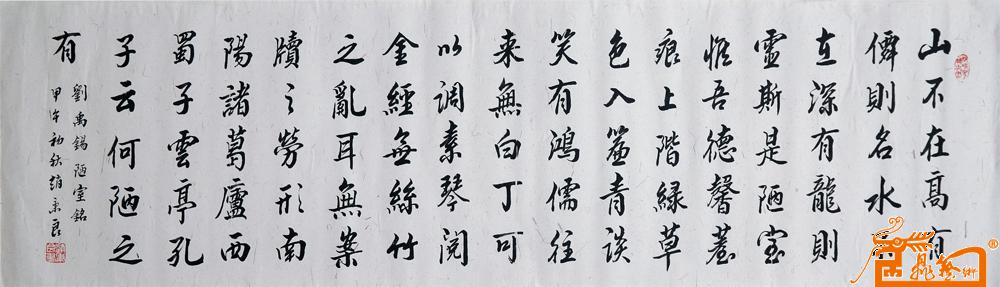 山不在高有
僊則名水
在深有龍則
靈斯是陋室
惟吾德馨苔
痕上階緑草
色入簾青談
笑有鴻儒往
来無白丁可
以調素琴閱
金經無絲竹
之亂耳無案
牘之勞形南
陽諸葛廬西
蜀子雲亭孔
子云何陋之
有
劉禹錫陋室銘
甲午初秋趙